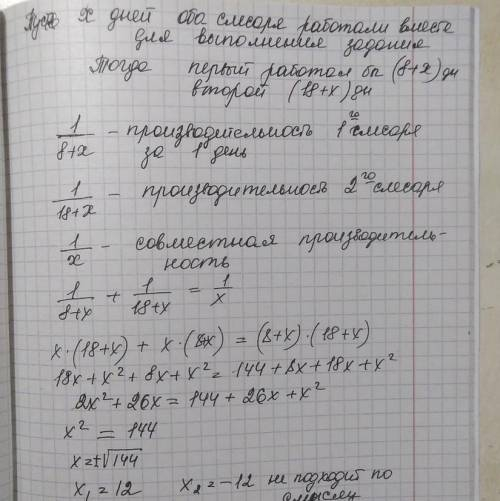 Пусть x дней оба слесаря работали вместе
для выполнения задания
Тогда первый работал бы (8+x) дн
второй (18+x) дн
1/(8+x) – производительность 1го слесаря
за 1 день
1/(18+x) – производительность 2го слесаря
1/x – совместная производитель-
ность
1/(8+x) + 1/(18+x) = 1/x
x·(18+x) + x·(8x) = (8+x)·(18+x)
18x + x² + 8x + x² = 144 + 8x + 18x + x²
2x² + 26x = 144 + 26x + x²
x² = 144
x = ±√144
x₁ = 12 x₂ = –12 не подходит по
смыслу